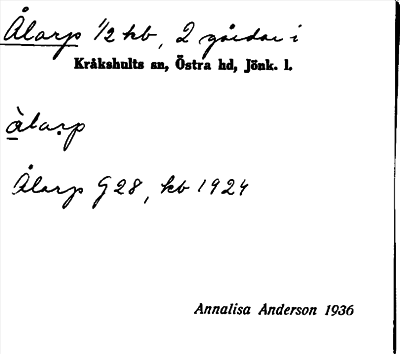 Ålarp 1/2 kb, 2 gårdar i
Kråkshults sn, Östra hd, Jönk. l.
àla̤rp
Ålarp G28, kb 1924
Annalisa Anderson 1936